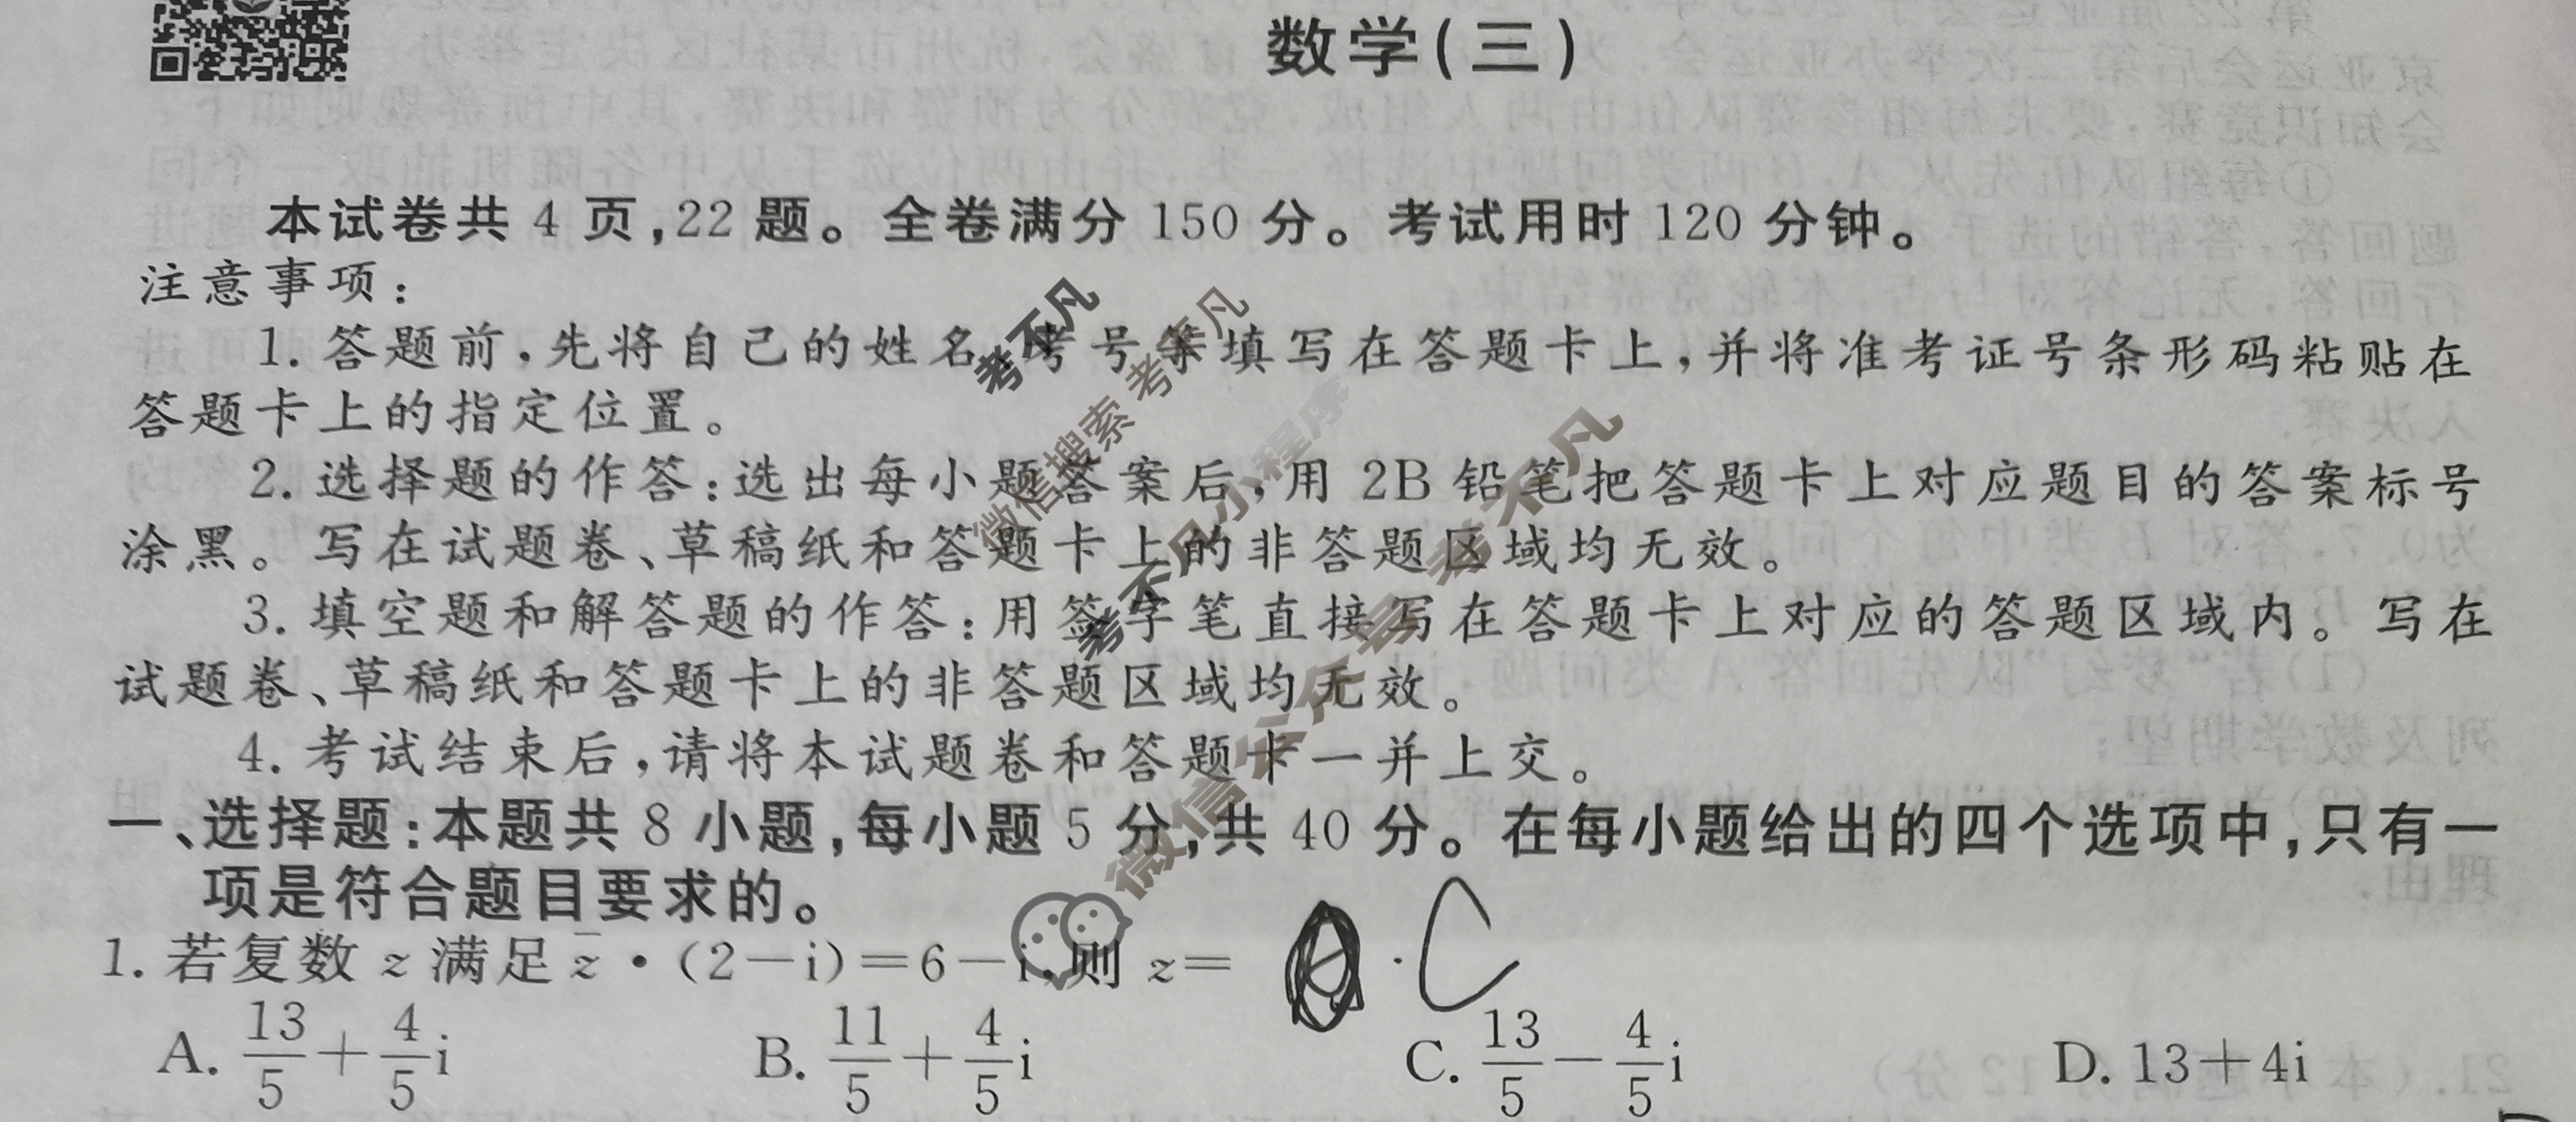 数学(三)
本试卷共 4 页,22 题。全卷满分 150 分。考试用时 120 分钟。
注意事项:
1. 答题前,先将自己的姓名、考号等填写在答题卡上,并将准考证号条形码粘贴在
答题卡上的指定位置。
2. 选择题的作答:选出每小题答案后,用 2B 铅笔把答题卡上对应题目的答案标号
涂黑。写在试题卷、草稿纸和答题卡上的非答题区域均无效。
3. 填空题和解答题的作答:用签字笔直接写在答题卡上对应的答题区域内。写在
试题卷、草稿纸和答题卡上的非答题区域均无效。
4. 考试结束后,请将本试题卷和答题卡一并上交。
一、选择题:本题共 8 小题,每小题 5 分,共 40 分。在每小题给出的四个选项中,只有一
项是符合题目要求的。
1. 若复数 z 满足 z̄ · (2-i)=6-i,则 z= C
A. 13/5 + 4/5 i B. 11/5 + 4/5 i C. 13/5 - 4/5 i D. 13+4i
考不凡
微信搜索 考不凡
考不凡小程序
微信公众号 考不凡